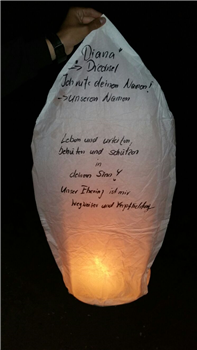 Diana
→ Diedrael
Ich rufe deinen Namen!
→ Unseren Namen
Leben und wirken,
Behüten und schützen
in
deinem Sinn!
Unser Ehering ist mir
Wegweiser und Verpflichtung